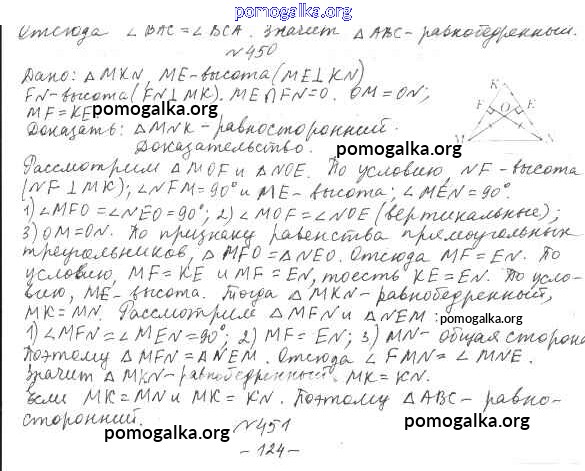 pomogalka.org
Отсюда ∠BAC = ∠BCA. Значит △ABC - равнобедренный.
№450
Дано: △MKN, ME - высота (ME⊥KN)
FN - высота (FN⊥MK). ME∩FN=O. OM=ON;
MF=KE
pomogalka.org
Доказать: △MNK - равносторонний.
Доказательство.
K
F O E
M N
pomogalka.org
Рассмотрим △MOF и △NOE. По условию, NF - высота
(NF⊥MK); ∠NFM=90° и ME - высота; ∠MEN=90°.
1) ∠MFO=∠NEO=90°; 2) ∠MOF=∠NOE (вертикальные);
3) OM=ON. По признаку равенства прямоугольных
треугольников, △MFO=△NEO. Отсюда MF=EN. По
условию, MF=KE и MF=EN, тоесть KE=EN. По усло-
вию, ME - высота. Тогда △MKN - равнобедренный,
MK=MN. Рассмотрим △MFN и △NEM:
1) ∠MFN=∠MEN=90°; 2) MF=EN; 3) MN - общая сторона
Поэтому △MFN=△NEM. Отсюда ∠FMN=∠MNE.
Значит △MKN - равнобедренный. MK=KN.
Если MK=MN и MK=KN. Поэтому △ABC - равно-
сторонний.
pomogalka.org
№451
pomogalka.org
-124-
pomogalka.org